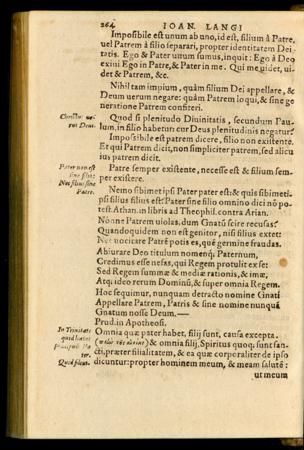 264 IOAN. LANGI
Impoſsibile eſt unum ab uno, id eſt, filium à Patre,
uel Patrem à filio ſeparari, propter identitatem Dei
tatis. Ego & Pater unum ſumus, inquit: Ego à Deo
exiui Ego in Patre, & Pater in me. Qui me uidet, ui-
det & Patrem, &c.
Nihil tam impium, quàm filium Dei appellare, &
Deum uerum negare: quàm Patrem loqui, & ſine ge
neratione Patrem confiteri.
Chriſtus ue-
rus Deus.
Quod ſi plenitudo Diuinitatis, ſecundum Pau-
lum, in filio habetur cur Deus plenitudinis negatur?
Impoſsibile eſt patrem dicere, filio non exiſtente.
Et qui Patrem dicit, non ſimpliciter patrem, ſed alicu
ius patrem dicit.
Pater non eſt
ſine filio:
Nec filius ſine
Patre.
Patre ſemper exiſtente, neceſſe eſt & filium ſem-
per exiſtere.
Nemo ſibimet ipſi Pater pater eſt: & quis ſibimeti-
pſi filius filius eſt? Pater ſine filio omnino dici nõ po-
teſt. Athan. in libris ad Theophil. contra Arian.
Nonne Patrem uiolas, dum Gnatũ ſcire recuſas?
Quandoquidem non eſt genitor, niſi filius extet:
Nec uocitare Patrẽ potis es, quẽ germine fraudas.
Abiurare Deo titulum nomenq́; Paternum,
Credimus eſſe nefas, qui Regem protulit ex ſe:
Sed Regem ſummæ & mediæ rationis, & imæ,
Atq́; ideo rerum Dominũ, & ſuper omnia Regem.
Hoc ſequimur, nunquam detracto nomine Gnati
Appellare Patrem, Patris & ſine nomine nunquã
Gnatum noſſe Deum.—
Prud. in Apotheoſi.
In Trinitate
quid
Pa
ter.
Quid filius.
Omnia quæ pater habet, filij ſunt, cauſa excepta.
& omnia filij, Spiritus quoq́; ſunt ſan-
cti, præter filialitatem, & ea quæ corporaliter de ipſo
dicuntur: propter hominem meum, & meam ſalutẽ:
ut meum